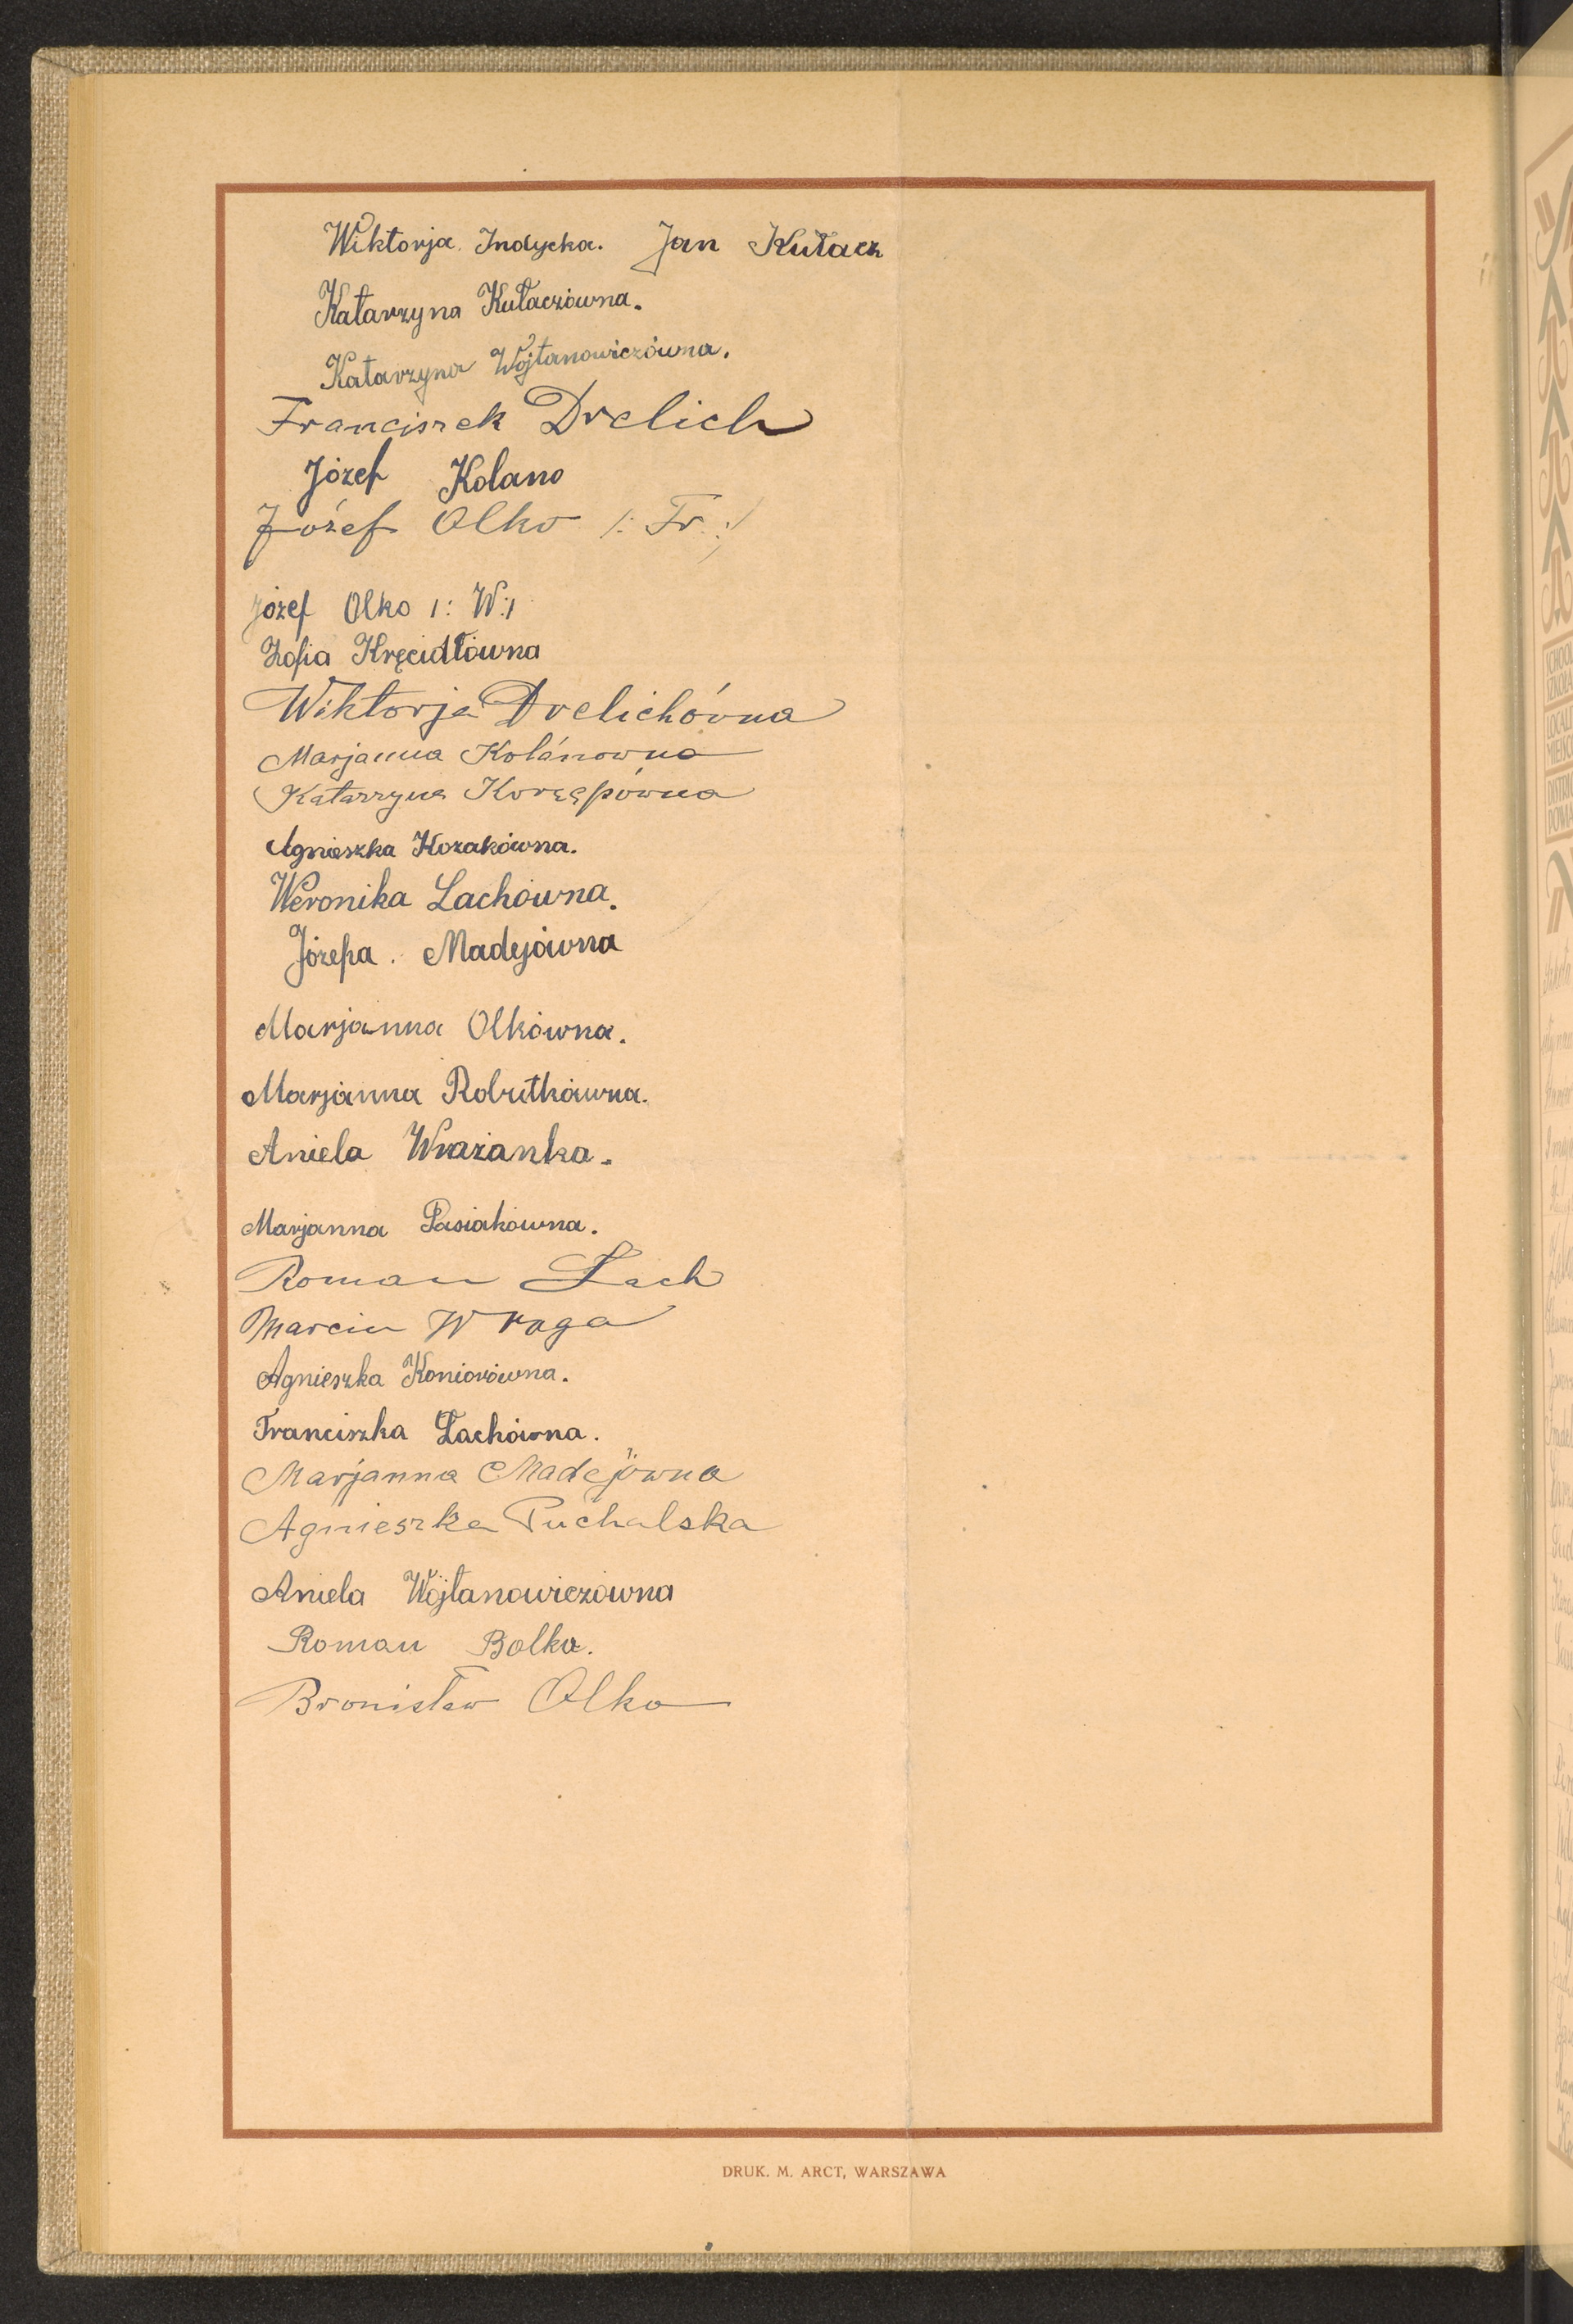 Wiktorja Indycka. Jan Kułacz
Katarzyna Kułaczówna.
Katarzyna Wojtanowiczówna.
Franciszek Drelich
Józef Kolano
Józef Olko /: Fr. :/
Józef Olko /: W :/
Zofia Kręcidłówna
Wiktorja Drelichówna
Marjanna Kolanówna
Katarzyna Korzępówna
Agnieszka Kozakówna.
Weronika Lachówna.
Józefa. Madejówna
Marjanna Olkówna.
Marjanna Robutkówna.
Aniela Wrażanka.
Marjanna Pasiakówna.
Roman Łach
Marcin Wraga
Agnieszka Koniorówna.
Franciszka Łachówna.
Marjanna Madejówna
Agnieszka Puchalska
Aniela Wojtanowiczówna
Roman Bolka.
Bronisław Olko
DRUK. M. ARCT, WARSZAWA